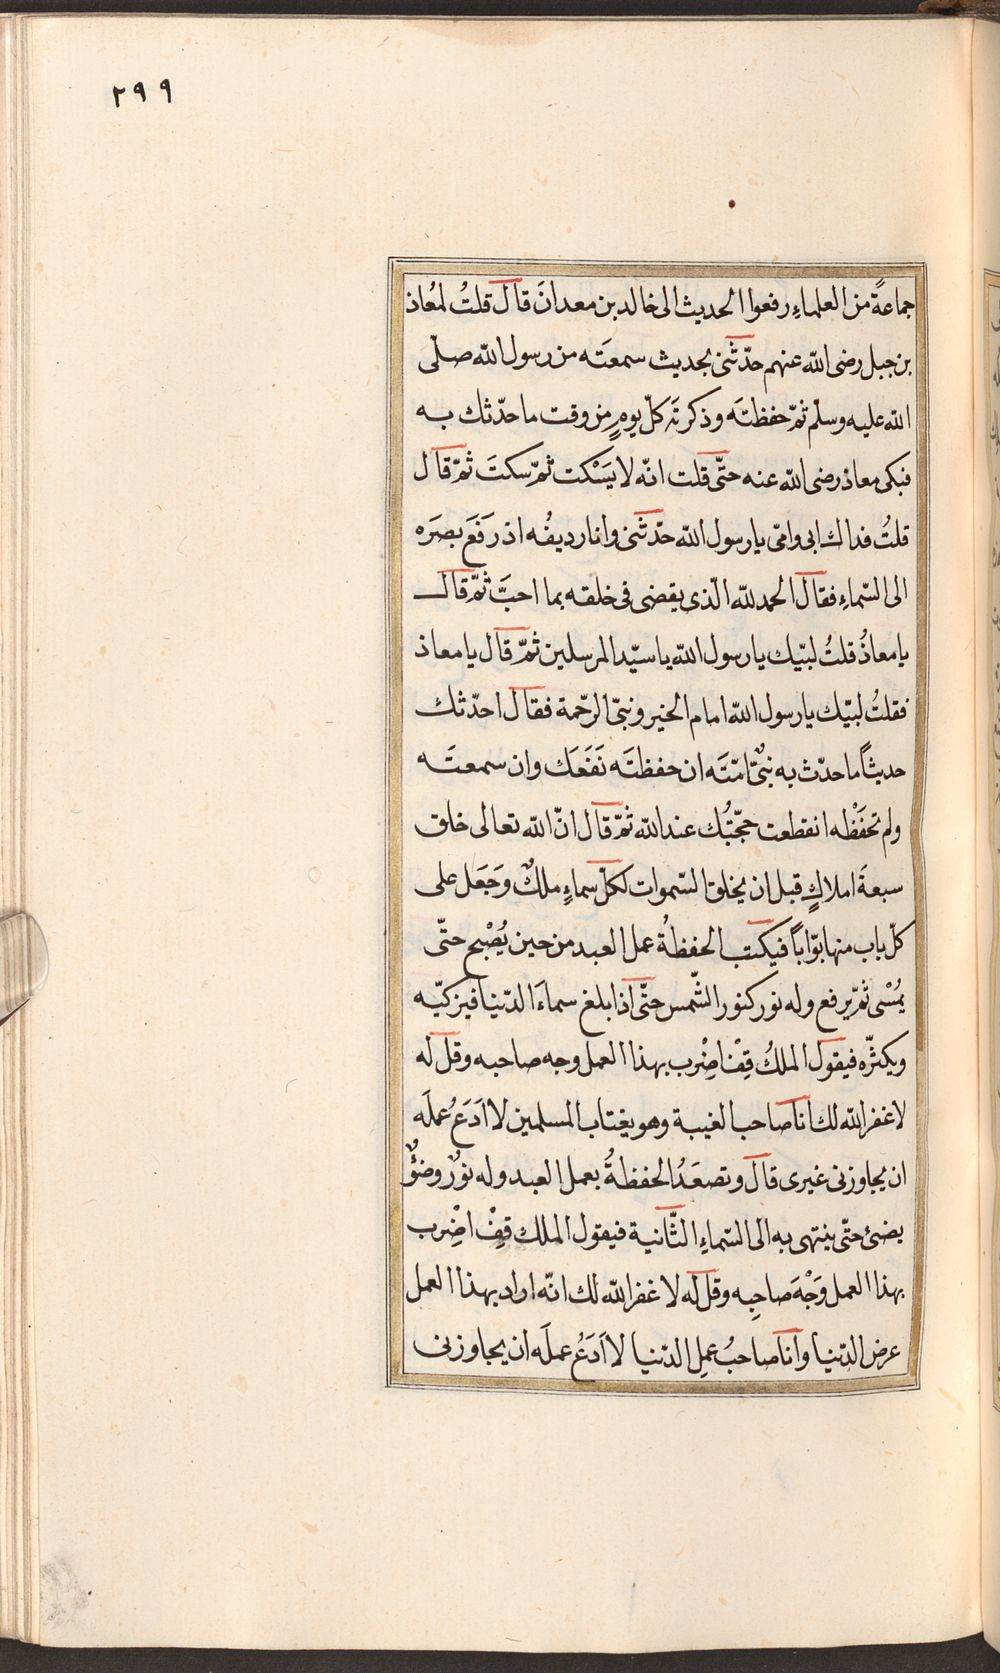 ٢٩٩
جماعةً من العلماءِ رفعوا الحديث الى خالد بن معدانَ قال قلتُ لمُعاذ
بن جبل رضى اللّه عنهم حدّثنى بحديث سمعتَه من رسول اللّه صلّى
اللّه عليه وسلّم ثمّ حفظتَه وذكرتَه كلّ يومٍ من وقت ما حدّثك به
فبكى معاذ رضى اللّه عنه حتّى قلت انّه لا يَسْكت ثمّ سكتَ ثمّ قال
قلتُ فداك ابى وامّى يا رسول اللّه حدّثنى وانا رديفُه اذ رَفَعَ بصَرَه
الى السّماءِ فقال الحمد للّه الّذى يقضى فى خلقه بما احبَّ ثمّ قال
يا معاذُ قلتُ لبّيك يا رسول اللّه يا سيّد المرسلين ثمّ قال يا معاذ
فقلتُ لبّيك يا رسول اللّه امام الخير ونبىّ الرحّمة فقال احدّثك
حديثاً ما حدّث به نبىٌّ امّتَه ان حفظتَه نَفَعَك وان سمعتَه
ولم تحفَظْه انقطعت حجّتُك عند اللّه ثمّ قال انّ اللّه تعالى خلق
سبعةَ املاكٍ قبل ان يخلق السّموات لكلّ سماءٍ ملكٌ وجَعَل على
كلّ باب منها بوّاباً فيكتب الحفظةُ عمل العبد من حين يُصْبح حتّى
يُمْسى ثمّ يرفع وله نور كنور الشّمس حتّى اذا بلغ سماءَ الدّنيا فيزكّيه
ويكثّره فيقول الملكُ قِفْ اضْرِب بهذا العمل وجه صاحبه وقل له
لا غفر اللّه لك انا صاحب الغيبة وهو يغتاب المسلمين لا ادَعُ عملَه
ان يجاوزنى غيرى قال وتصعَدُ الحفظةُ بعمل العبد وله نورٌ وضوْءٌ
يضئ حتّى ينتهى به الى السّماءِ الثّانية فيقول الملك قِفْ اضْرِب
بهذا العمل وَجْهَ صاحِبه وقل له لا غفر اللّه لك انّه اراد بهذا العمل
عرض الدّنيا وانا صاحبُ عملِ الدّنيا لا اَدَعُ عملَه ان يجاوزنى